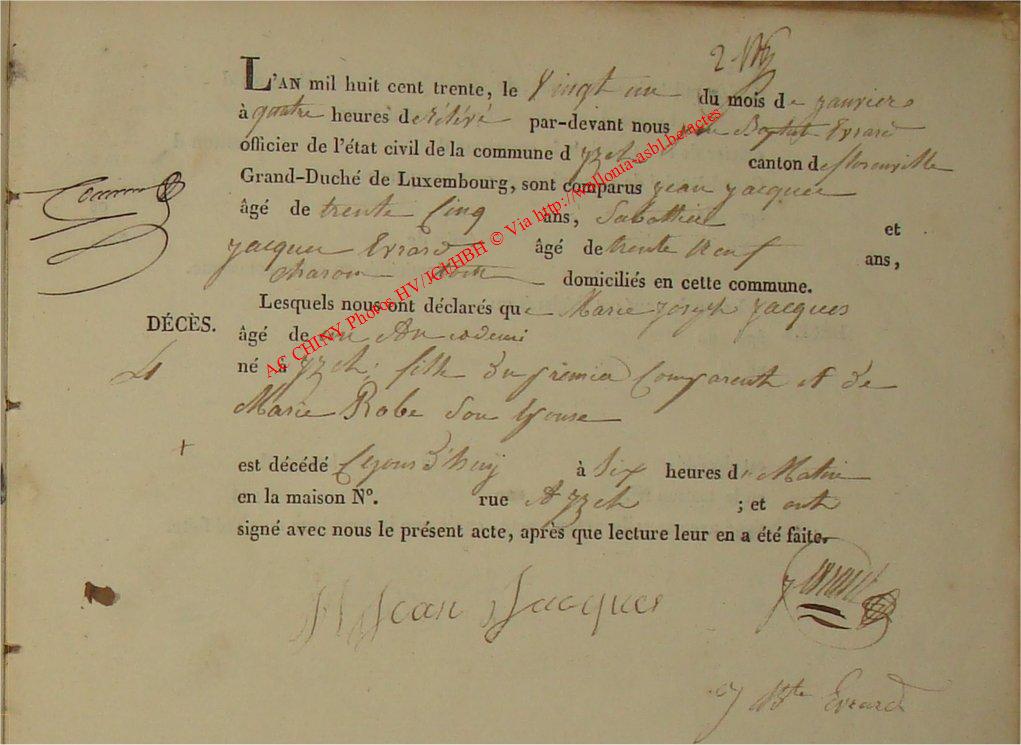 L'AN mil huit cent trente, le Vingt un du mois de janvier
à quatre heures de rélévé par-devant nous Baptiste Evrard
officier de l'état civil de la commune d'yzel canton de florenville
Grand-Duché de Luxembourg, sont comparus jean jacques
âgé de trente Cinq ans, Sabottier et
jacques Evrard âgé de trente neuf ans,
charon domiciliés en cette commune.
Lesquels nous ont déclarés que Marie joseph jacques
DÉCÈS.
âgé de un An
4
né à yzel, fille du premier Comparent et de
Marie Robe Son Epouse
+
est décédé Cejourd'huy à Six heures du Matin
en la maison N°. rue A yzel ; et ont
signé avec nous le présent acte, après que lecture leur en a été faite.
Jean Jacques
j Bte Evrard
AC CHINY Photos HV/JCKHBH © Via http://wallonia-asbl.be/actes